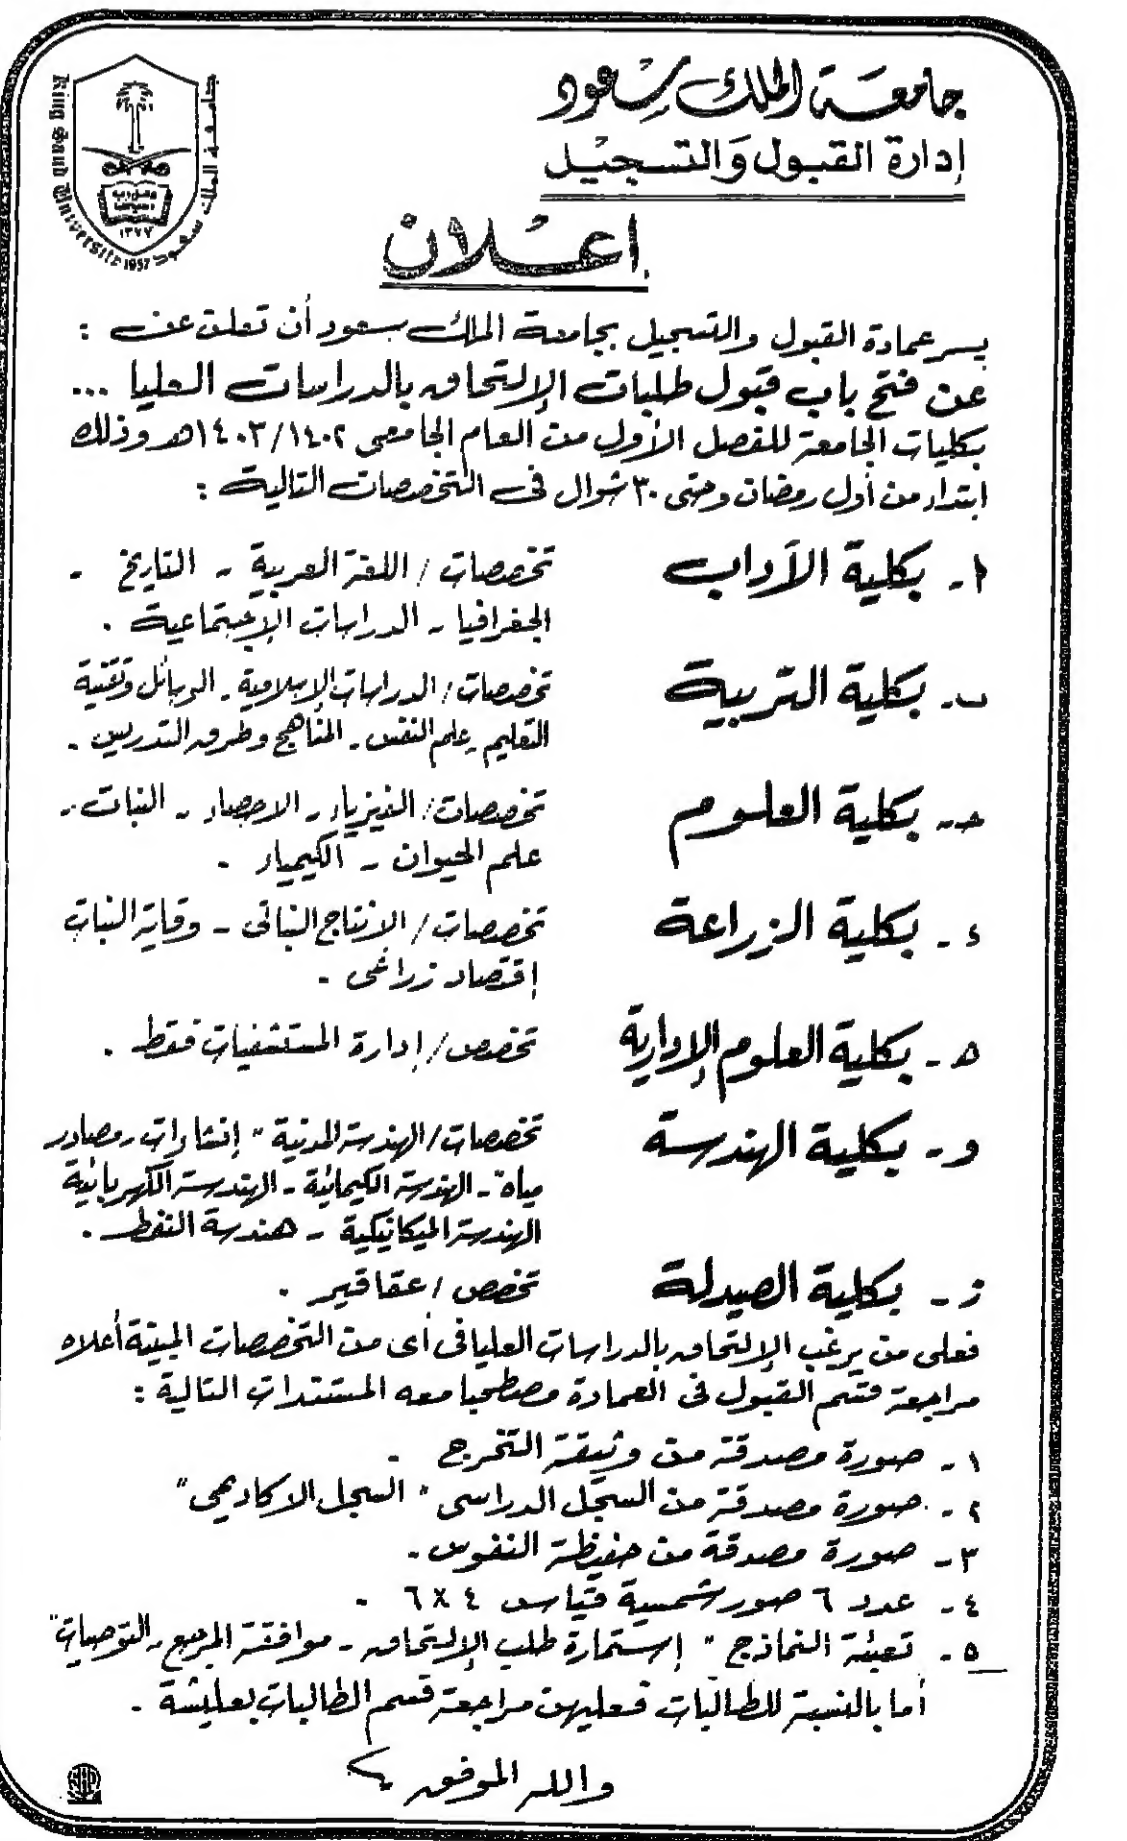 جامعة الملك سعود
إدارة القبول والتسجيل
King Saud University 1957
جامعة الملك سعود
١٣٧٧
إعلان
يسر عمادة القبول والتسجيل بجامعة الملك سعود أن تعلن عن :
عن فتح باب قبول طلبات الإلتحاق بالدراسات العليا ...
بكليات الجامعة للفصل الأول من العام الجامعى ١٤٠٣/١٤٠٢هـ وذلك
ابتداء من أول رمضان وحتى ٣٠ شوال فى التخصصات التالية :
ا - بكلية الآداب
تخصصات / اللغة العربية - التاريخ -
الجغرافيا - الدراسات الإجتماعية .
ب - بكلية التربية
تخصصات / الدراسات الإسلامية - الوسائل وتقنية
التعليم - علم النفس - المناهج وطرق التدريس -
حـ - بكلية العلوم
تخصصات / الفيزياء - الاحصاء - النبات -
علم الحيوان - الكيمياء -
ء - بكلية الزراعة
تخصصات / الإنتاج النباتى - وقاية النبات
إقتصاد زراعى -
هـ - بكلية العلوم الإدارية
تخصص / إدارة المستشفيات فقط .
و - بكلية الهندسة
تخصصات / الهندسة المدنية " إنشاءات - مصادر
مياه " - الهندسة الكيمائية - الهندسة الكهربائية
الهندسة الميكانيكية - هندسة النفط .
ز - بكلية الصيدلة
تخصص / عقاقير .
فعلى من يرغب الإلتحاق بالدراسات العليا فى أى من التخصصات المبينة أعلاه
مراجعة قسم القبول فى العمادة مصطحبا معه المستندات التالية :
١ - صورة مصدقة من وثيقة التخرج -
٢ - صورة مصدقة من السجل الدراسى " السجل الاكاديمى "
٣ - صورة مصدقة من حفيظة النفوس -
٤ - عدد ٦ صور شمسية قياس ٤ × ٦ -
٥ - تعبئة النماذج " إستمارة طلب الإلتحاق - موافقة المرجع - التوصيات "
أما بالنسبة للطالبات فعليهن مراجعة قسم الطالبات بعليشة -
والله الموفق